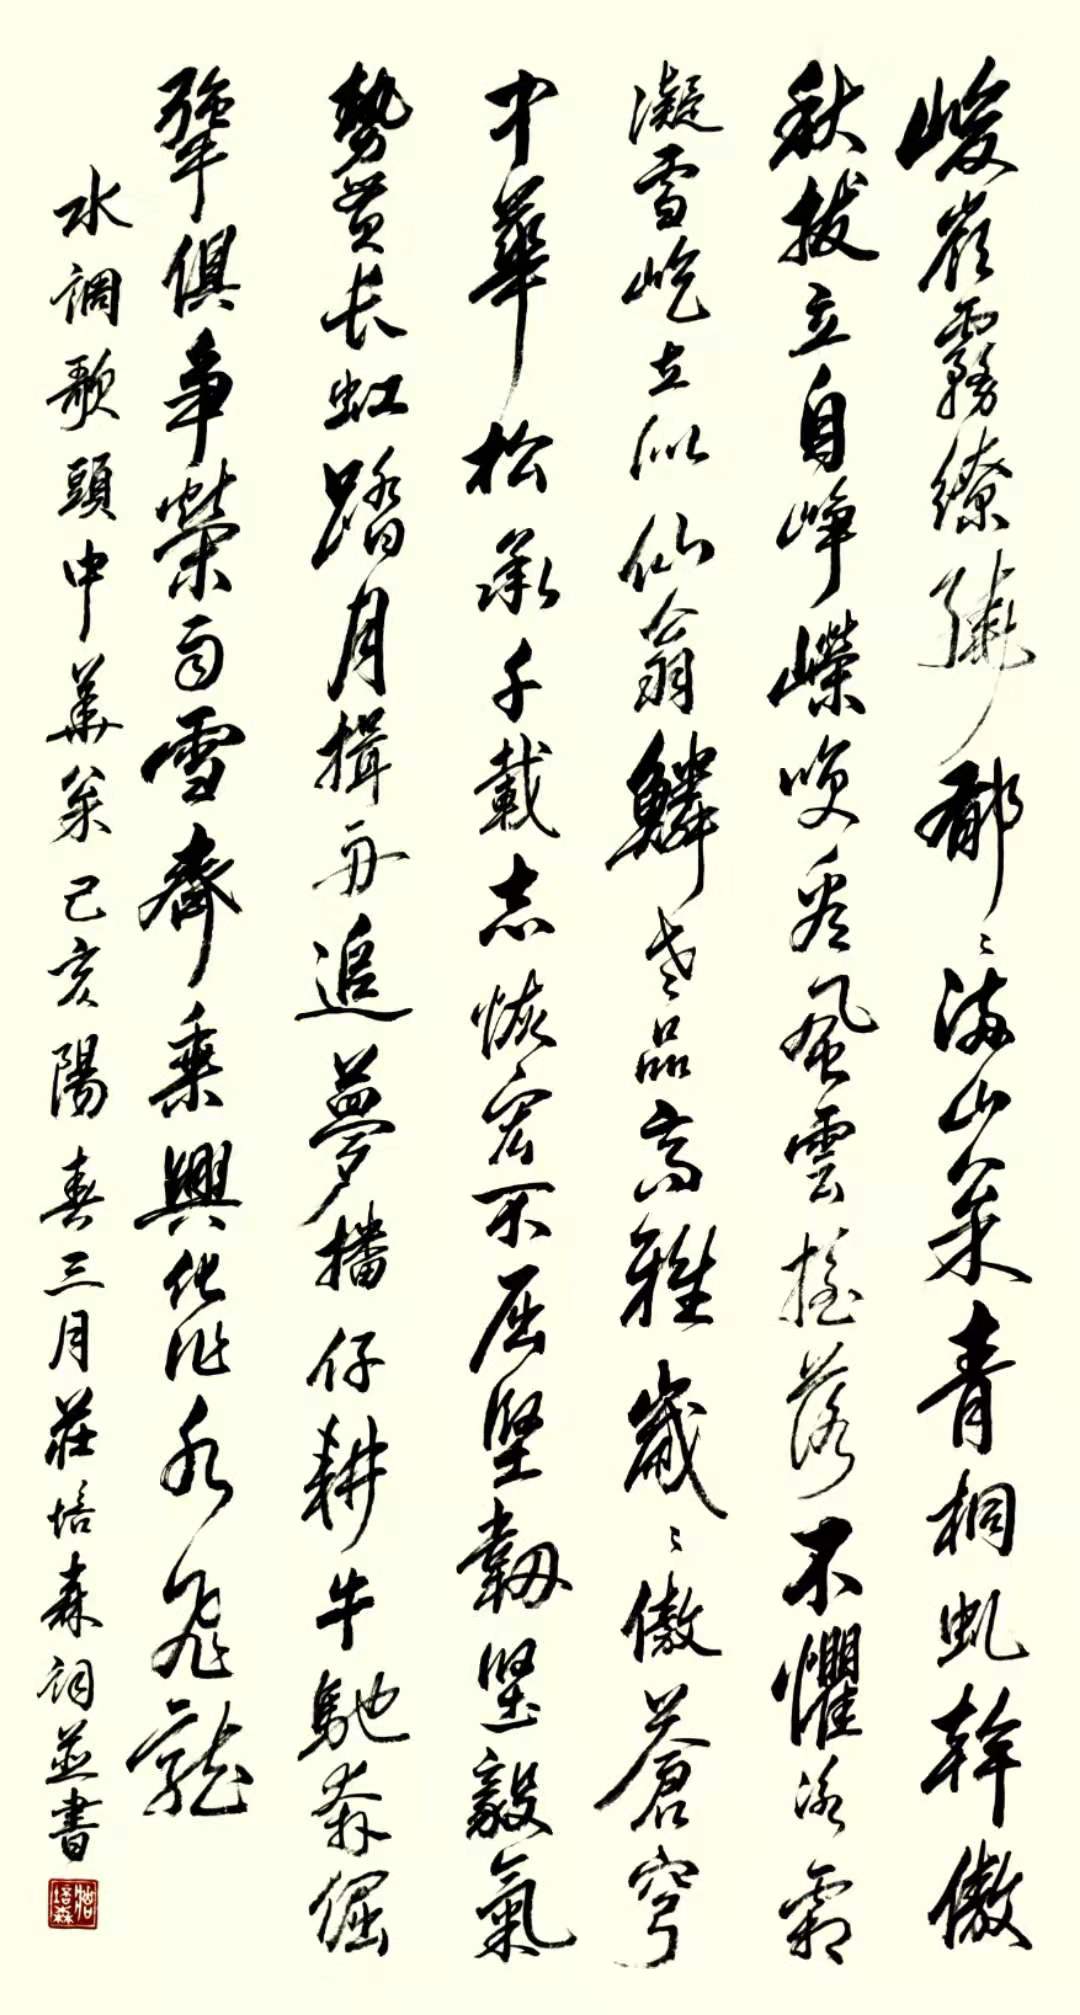 峻嶺霧繚繞郁〻滿山枀青桐虬幹傲
秋拔立自崢嶸笑看風雲搖落不懼冰霜
凝雪屹立似仙翁鱗老品高雅歲〻傲蒼穹
中華松承千載志恢宏不屈堅韌堅毅氣
勢貫長虹踏月揖舟追夢播仔耕牛馳奔倔
犟俱爭榮雨雪齊乘興化作水飛龍
水調歌頭中華枀己亥陽春三月莊培森詞並書